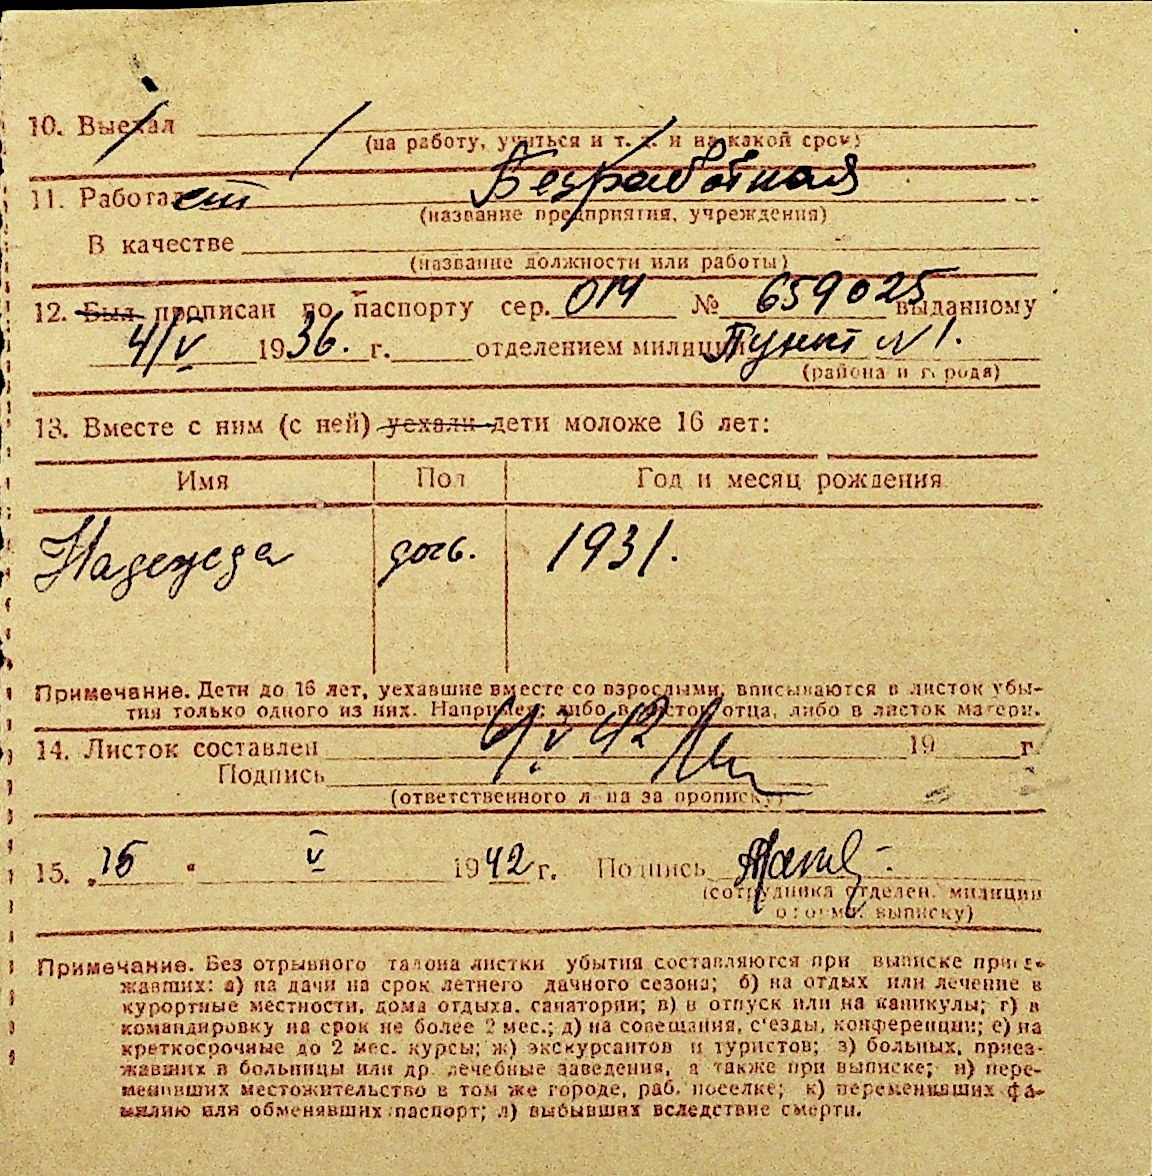 10. Выехал
(на работу, учиться и т. д. и на какой срок)
11. Работает Безработная
(название предприятия, учреждения)
В качестве
(название должности или работы)
12. Был прописан по паспорту сер. № 659025 выданному
4/V 1936. г. отделением милиции Пункт №1.
(района и города)
13. Вместе с ним (с ней) уехали дети моложе 16 лет:
Имя Пол Год и месяц рождения
Надежда дочь. 1931.
Примечание. Дети до 16 лет, уехавшие вместе со взрослыми, вписываются в листок убы-
тия только одного из них. Например: либо в листок отца, либо в листок матери.
14. Листок составлен V 42 19 г.
Подпись
(ответственного лица за прописку)
15. „15 " V 1942 г. Подпись
(сотрудника отделен. милиции
оформ. выписку)
Примечание. Без отрывного талона листки убытия составляются при выписке приез-
жавших: а) на дачи на срок летнего дачного сезона; б) на отдых или лечение в
курортные местности, дома отдыха, санатории; в) в отпуск или на каникулы; г) в
командировку на срок не более 2 мес.; д) на совещания, с'езды, конференции; е) на
краткосрочные до 2 мес. курсы; ж) экскурсантов и туристов; з) больных, приез-
жавших в больницы или др. лечебные заведения, а также при выписке; и) пере-
менивших местожительство в том же городе, раб. поселке; к) переменивших фа-
милию или обменявших паспорт; л) выбывших вследствие смерти.